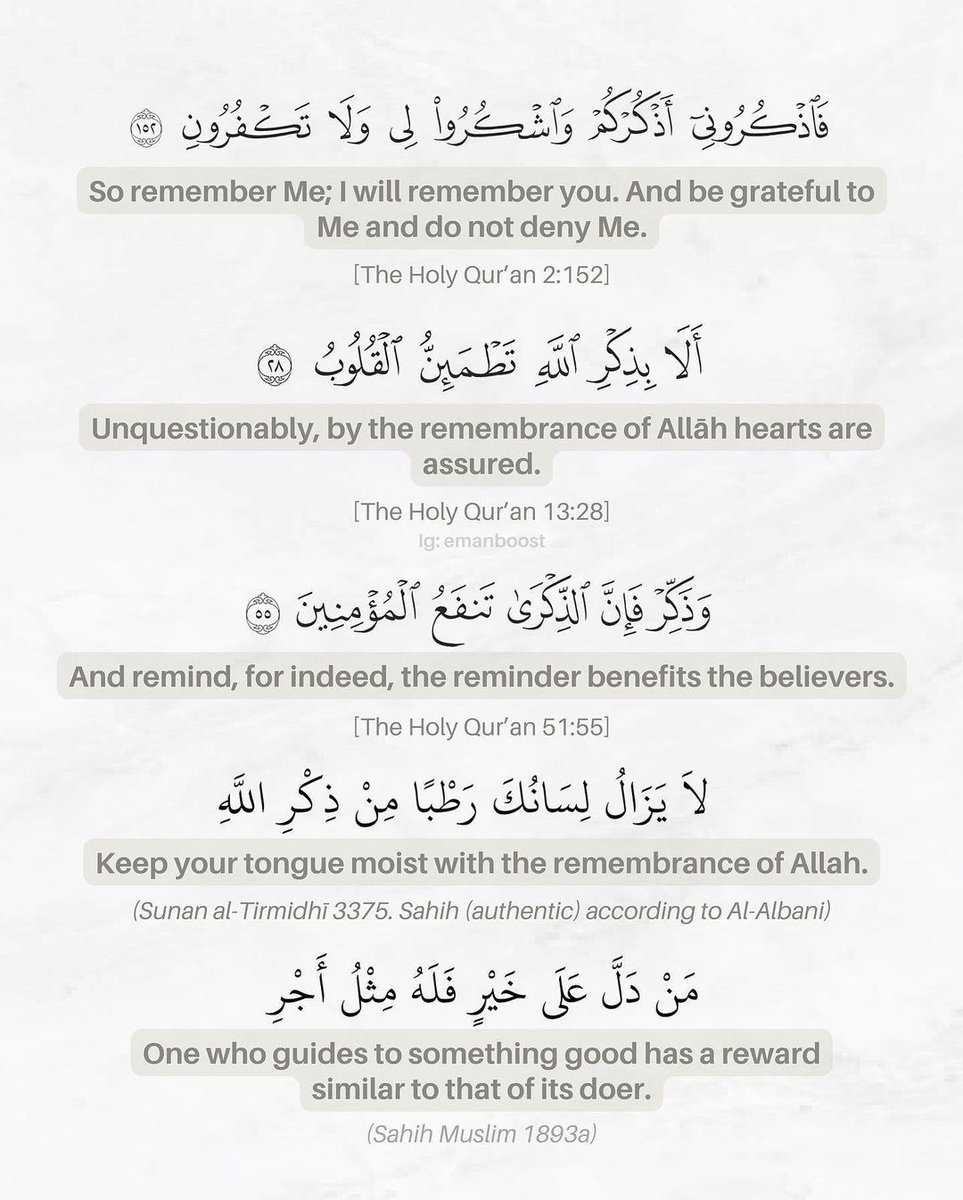 فَٱذۡكُرُونِيٓ أَذۡكُرۡكُمۡ وَٱشۡكُرُواْ لِي وَلَا تَكۡفُرُونِ ١٥٢
So remember Me; I will remember you. And be grateful to
Me and do not deny Me.
[The Holy Qur’an 2:152]
أَلَا بِذِكۡرِ ٱللَّهِ تَطۡمَئِنُّ ٱلۡقُلُوبُ ٢٨
Unquestionably, by the remembrance of Allāh hearts are
assured.
[The Holy Qur’an 13:28]
Ig: emanboost
وَذَكِّرۡ فَإِنَّ ٱلذِّكۡرَىٰ تَنفَعُ ٱلۡمُؤۡمِنِينَ ٥٥
And remind, for indeed, the reminder benefits the believers.
[The Holy Qur’an 51:55]
لاَ يَزَالُ لِسَانُكَ رَطْبًا مِنْ ذِكْرِ اللَّهِ
Keep your tongue moist with the remembrance of Allah.
(Sunan al-Tirmidhī 3375. Sahih (authentic) according to Al-Albani)
مَنْ دَلَّ عَلَى خَيْرٍ فَلَهُ مِثْلُ أَجْرِ
One who guides to something good has a reward
similar to that of its doer.
(Sahih Muslim 1893a)